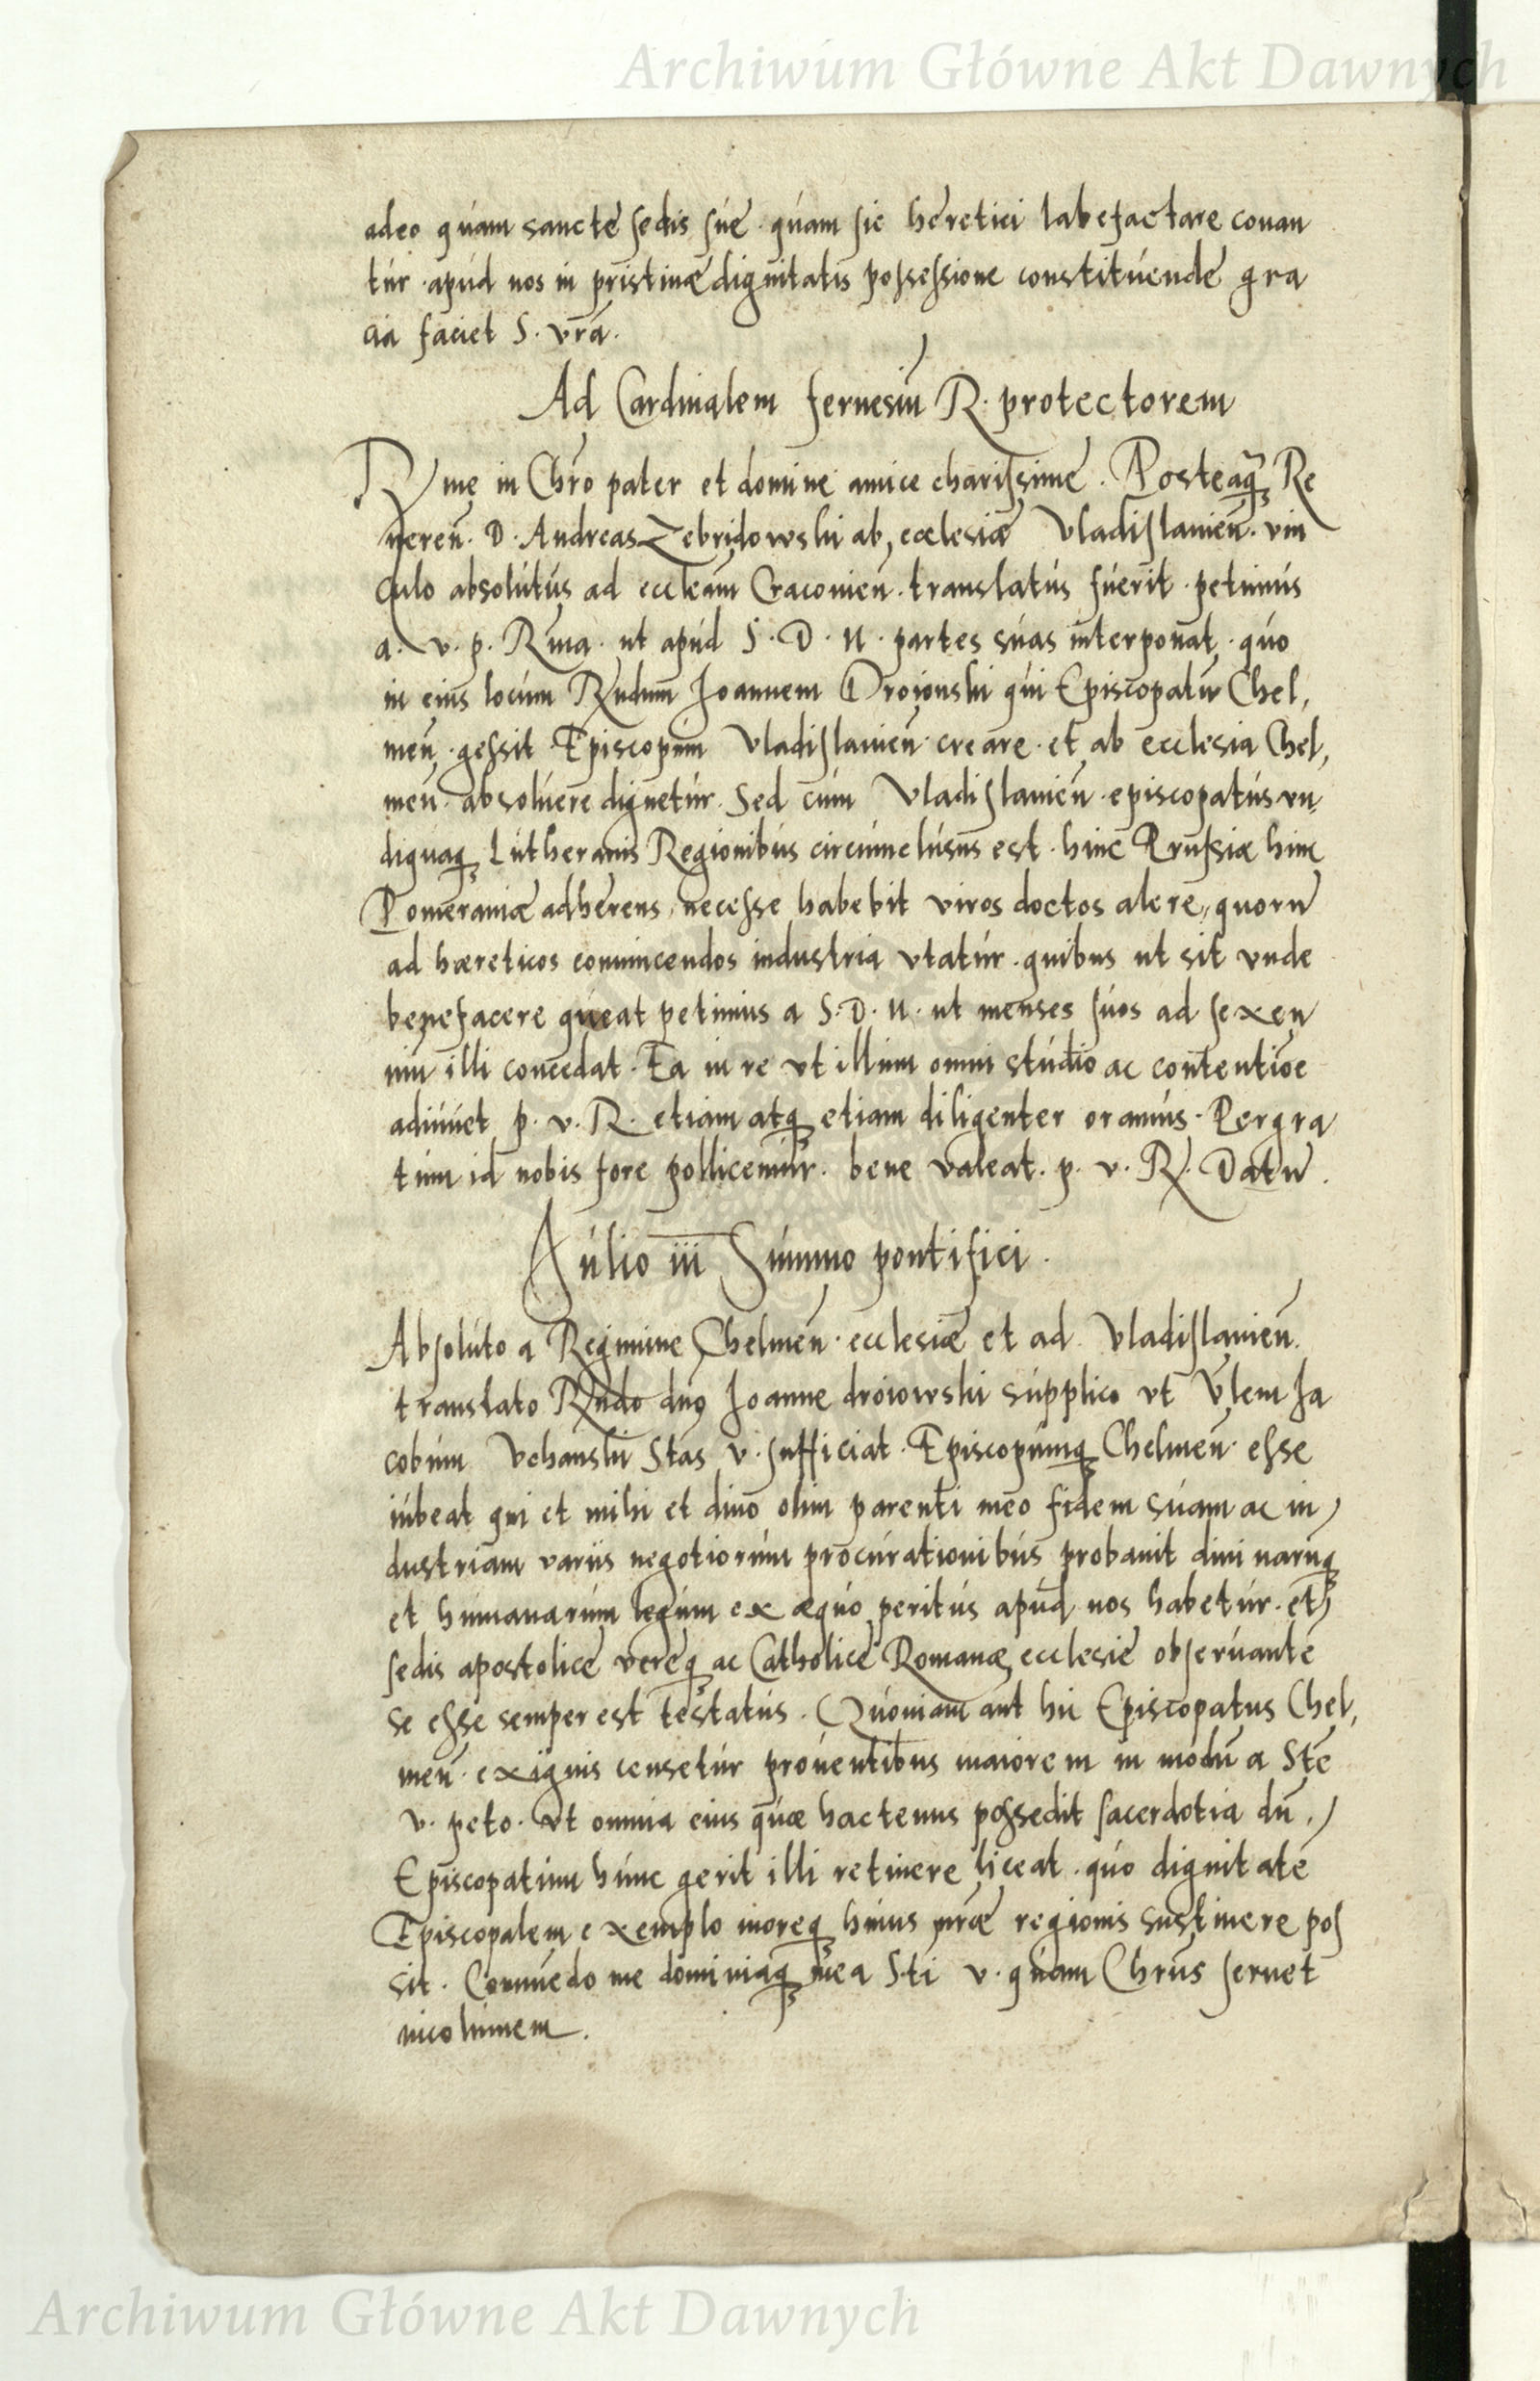 Archiwum Główne Akt Dawnych
adeo quam sancte sedis sue · quam sic heretici labefactare conan
tur · apud nos in pristinæ dignitatis possessione constituende gra
cia faciet S. vrã.
Ad Cardinalem fernesiu R. protectorem
Rme in Chro pater et domine amice charissime. Posteaq Re
neren. D. Andreas Zebridowski ab ecclesiæ Vladislauien. vin
culo absolutus ad eccleam Cracouien. translatus fuerit · petimus
a. v. p. Rma. ut apud S. D. N. partes suas interponat · quo
in eius locum Rndum Joannem Droionski qui Episcopatu Chel,
men. gessit Episcopum Vladislauien creare · et ab ecclesia Chel,
men. absoluere dignetur. Sed cum Vladislauien · episcopatus un,
diquaq Lutheranis Regionibus circumclusus est · hinc Prussiæ hinc
Pomeraniæ adherens, necesse habebit viros doctos alere, quoru
ad hæreticos conuincendos industria utatur · quibus ut sit unde
benefacere queat petimus a S. D. N. ut menses suos ad sexen
niu illi concedat. Ea in re ut illum omni studio ac contentioe
adiuuet p. v. R. etiam atq etiam diligenter oramus. Pergra
tum id nobis fore pollicemur. bene valeat. p. v. R. Datu.
Julio iii Summo pontifici.
Absoluto a Regimine Chelmen. ecclesiæ et ad Vladislauien.
translato Rndo dno Joanne droiowski supplico ut Vlem Ja
cobum Vchanski Stas v. sufficiat. Episcopumq Chelmen. esse
iubeat qui et mihi et diuo olim parenti meo fidem suam ac in,
dustriam variis negotiorum procurationibus probauit diuinaruq
et humanarum legum ex æquo peritus apud nos habetur. et,
sedis apostolice vereq ac Catholice Romanæ ecclesie obseruante
se esse semper est testatus. Quoniam aut hic Episcopatus Chel,
men. exiguis censetur prouentibus maiorem in modu a Ste
v. peto. ut omnia eius quæ hactenus possedit sacerdotia du,
Episcopatum hunc gerit illi retinere liceat · quo dignitate
Episcopalem exemplo moreq huius nræ regionis sustinere pos
sit. Commedo me dominiaq mea Sti v. quam Chrus seruet
incolumem.
Archiwum Główne Akt Dawnych